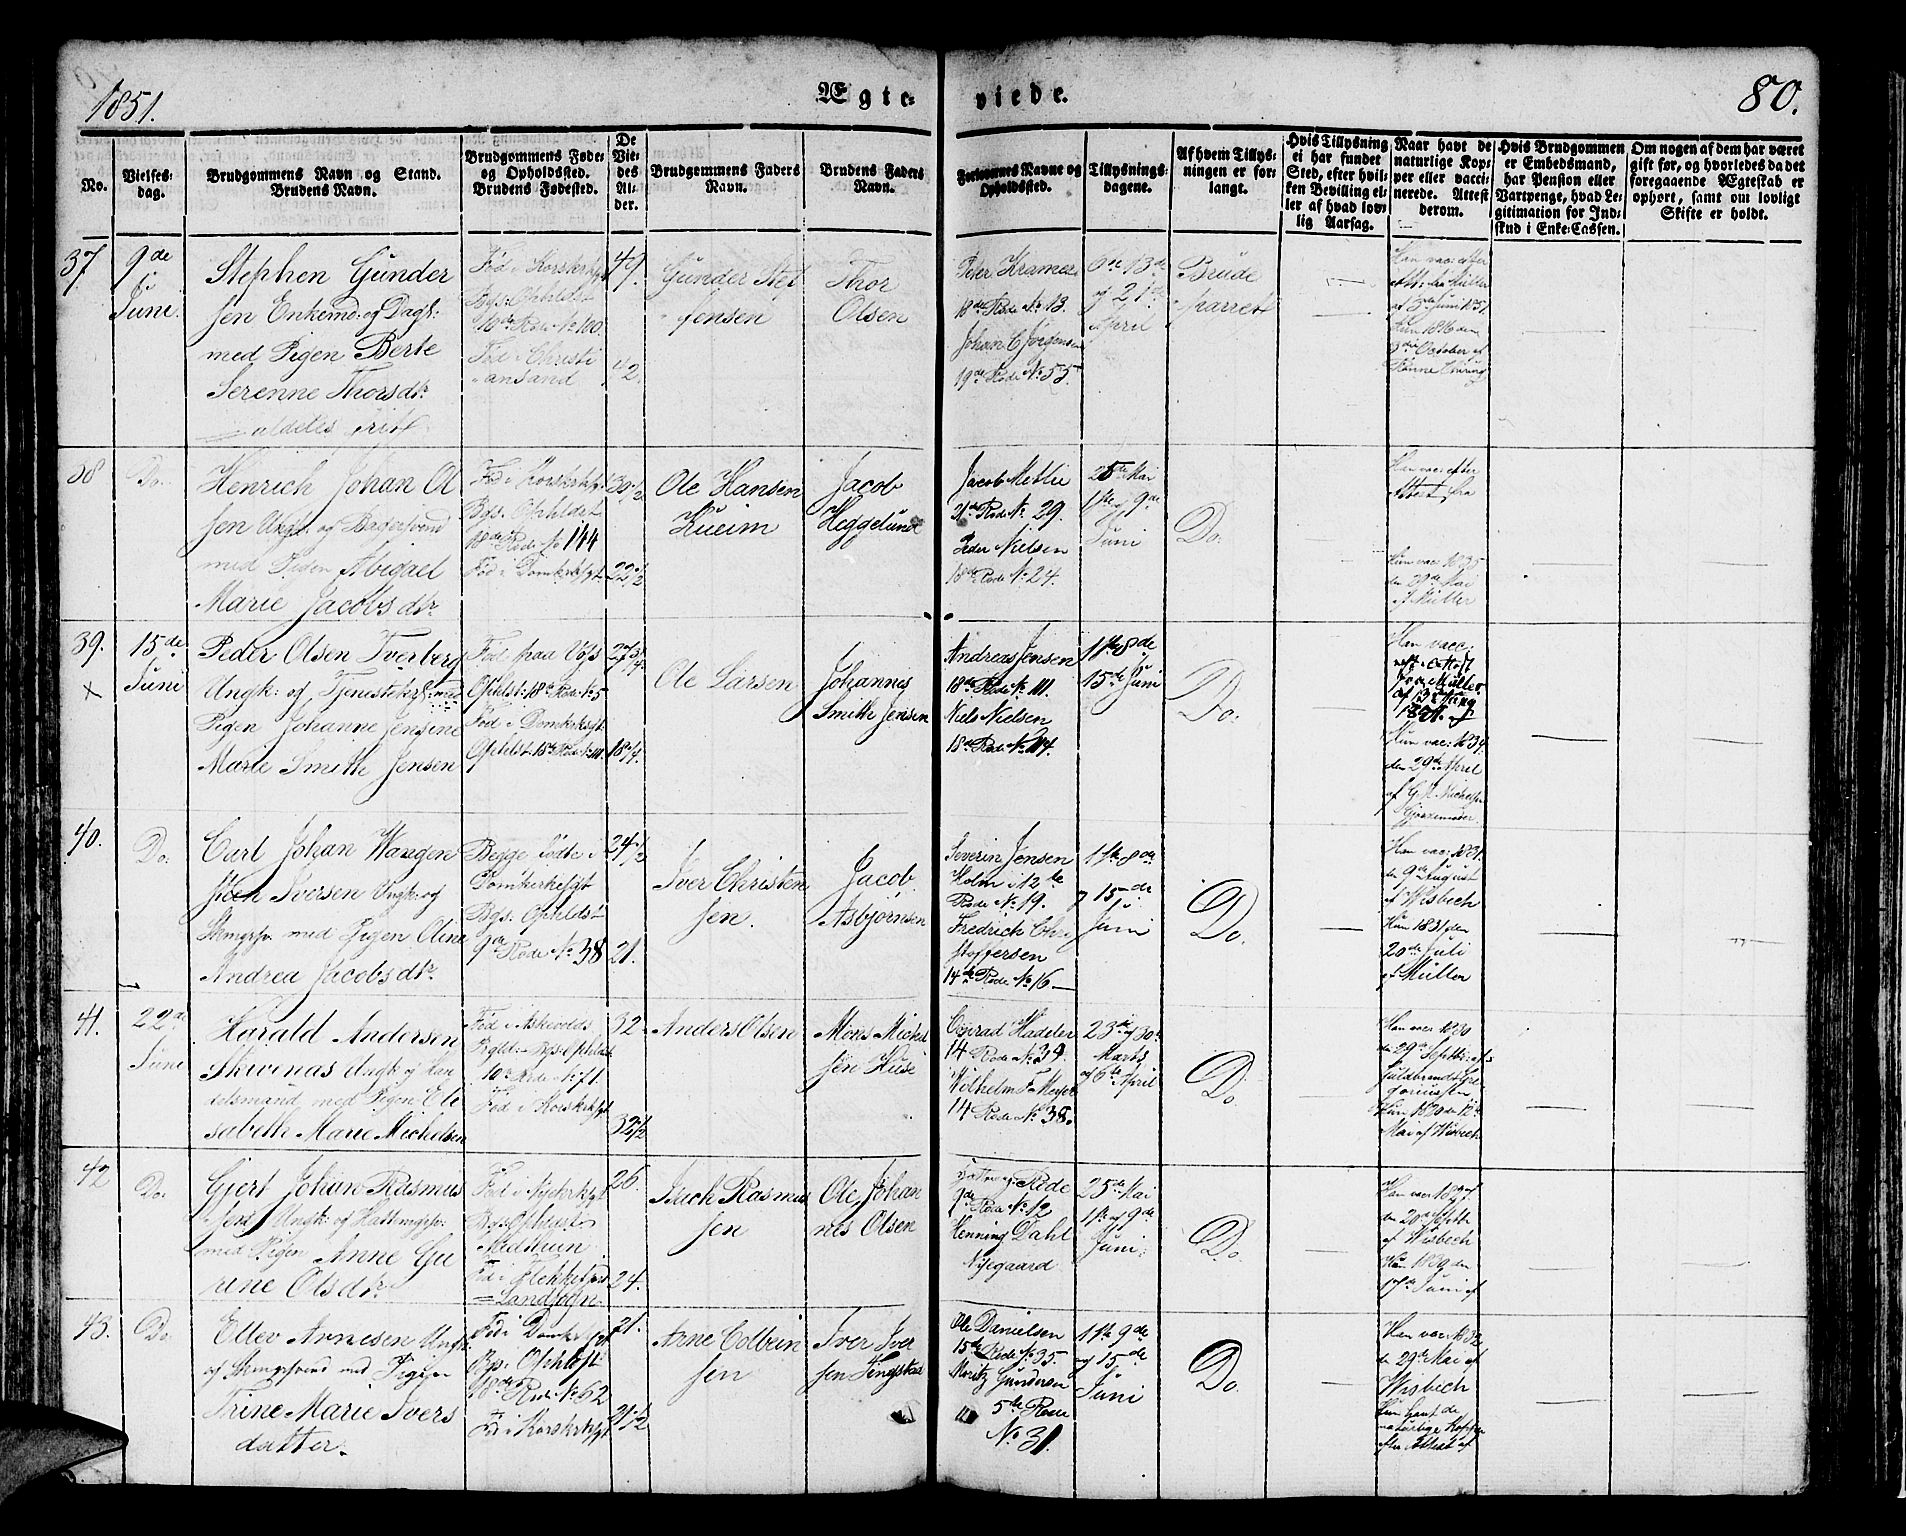 1851.
Ægte-
viede.
80.
No.
Vielses-
dag.
Brudgommens Navn og Stand.
Brudens Navn.
Brudgommens Føde-
og Opholdssted.
Brudens Fødested.
De
Vie-
des
Al-
der.
Brudgommens Faders
Navn.
Brudens Faders
Navn.
Forlovernes Navne og
Opholdssted.
Tillysnings-
dagene.
Af hvem Tillys-
ningen er for-
langt.
Hvis Tillysning
ei har fundet
Sted, efter hvil-
ken Bevilling el-
ler af hvad lov-
lig Aarsag.
Naar havt de
naturlige Kop-
per eller vacci-
nerede. Attest
derom.
Hvis Brudgommen
er Embedsmand,
har Pension eller
Vartpenge, hvad Le-
gitimation for Ind-
skud i Enke-Cassen.
Om nogen af dem har været
gift før, og hvorledes da det
foregaaende Ægteskab er
ophørt, samt om lovligt
Skifte er holdt.
37
9de
Juni
Stephen Gunder
sen Enkemd: og Dagk:
med Pigen Berte
Serenne Thorsdtr.
Fød i Korskirksgt
Bgs: Ophldst
10de Rode No 100.
Fød i Christi
ansand
49.
42.
Gunder Stef
fensen
Thor
Olsen
Peter Kramer
18de Rode No 13.
Johan C Jørgensen
19de Rode No 55.
6te 13de
og 21de
April
Brude
parret
Han vac: efter
Att: fra Müller
af 3de Juni 1851
Hun 1816 den
3de October af
38
Do.
Henrich Johan Ol
sen Ungk: og Bagersvend
med Pigen Abigael
Marie Jacobsdtr.
Fød i Korskirksgt
Bgs. Ophldst
18de Rode No 144
Fød i Domkirksgt.
30 1/2
22 1/2
Ole Hansen
Kueim
Jacob
Heggelund
Jacob Metlie
21de Rode No 29.
Peder Nielsen
18de Rode No 24.
25de Mai
1ste 9de
Juni
Do.
Han vac: efter
Attest fra
Hun vac: 1835
den 29de Mai
af Müller
39.
x
15de
Juni
Peder Olsen Tverberg
Ungk: og Tjenestekarl med
Pigen Johanne Jensine
Marie Smith Jensen
Fød paa Voss
Ophldst: 18de Rode No 5
Fød i Domkirksgt
Ophldst 18de Rode No 111.
27 3/4.
18 3/4.
Ole Larsen
Johannes
Smith Jensen
Andreas Jensen
18de Rode No 111.
Niels Nielsen
18de Rode No 114.
1ste 8de
15de Juni
Do.
Han vacc:
Hun vac: 1834
den 29de April
40.
Do.
Carl Johan Wangen
steen Iversen Ungk: og
Skmgrsv. med Pigen Oline
Andrea Jacobsdtr.
Begge fødte i
Domkirkesgt
Bgs: Ophldst
9de Rode No 38
24 1/2
21.
Iver Christen
sen.
Jacob
Asbjørnsen
Severin Jensen
Holm i 12te
Rode No 19.
Fredrich Chri
stoffersen
14de Rode No 16
1ste 8de
og 15de
Juni
Do.
Han vac: 1831.
den 9de August
af Wisbech
Hun 1831 den
20de Juli
af Müller
41.
22de
Juni
Harald Andersen
Skivenas Ungk: og Han
delsmand med Pigen Ele
sabeth Marie Michelsen
Fød i Askevolds
Pgld. Bgs: Ophldst
10de Rode No 71.
Fød i Korskirksgt
32
32 1/2
Anders Olsen
Mons Michel
sen Huse
Conrad Hadeler
14 Rode No 34.
Wilhelm F Meyer
14 Rode No 38.
23de og 30te
Marts
og 6te April
Do.
Han vac: 1830
den 29de Septbr: af
Guldbrand Gre
goriussen
Hun 1820 den 12te
Mai af Wisbech
42
Do.
Gjert Johan Rasmus
sen Ungk: og Hattemgrsv:
med Pigen Anne Gu
rine Olsdtr.
Fød i Nykirksgt
Bgs Ophldst
Fød i Flekkefjord
Landsogn
26.
24.
Isach Rasmus
sen
Ole Johan
nes Olsen
9de Rode No 12
Henning Dahl
Nygaard
25de Mai
1ste og 9de
Juni
Do.
Han vac: 1827
den 20de Septbr
af Wisbech
Hun 1830 den
17de Juni af
43.
Do.
Ellev Arnesen Ungk:
og Skmgrsvend med Pigen
Trine Marie Ivers
datter.
Fød i Domkirksgt
Bgs. Ophldst:
18de Rode No 62
Fød i Korskirksgt
21.
21 1/2
Arne Colbein
sen
Iver Iver
sen Tengstad
Ole Danielsen
15de Rode No 35.
Moritz Gundersen
5te Rode
No 31.
1ste 9de
og 15de
Juni
Do.
Han vac: 1832
den 29de Mai af
Wisbech
Hun havt de
naturlige Kopper
efter Attest af